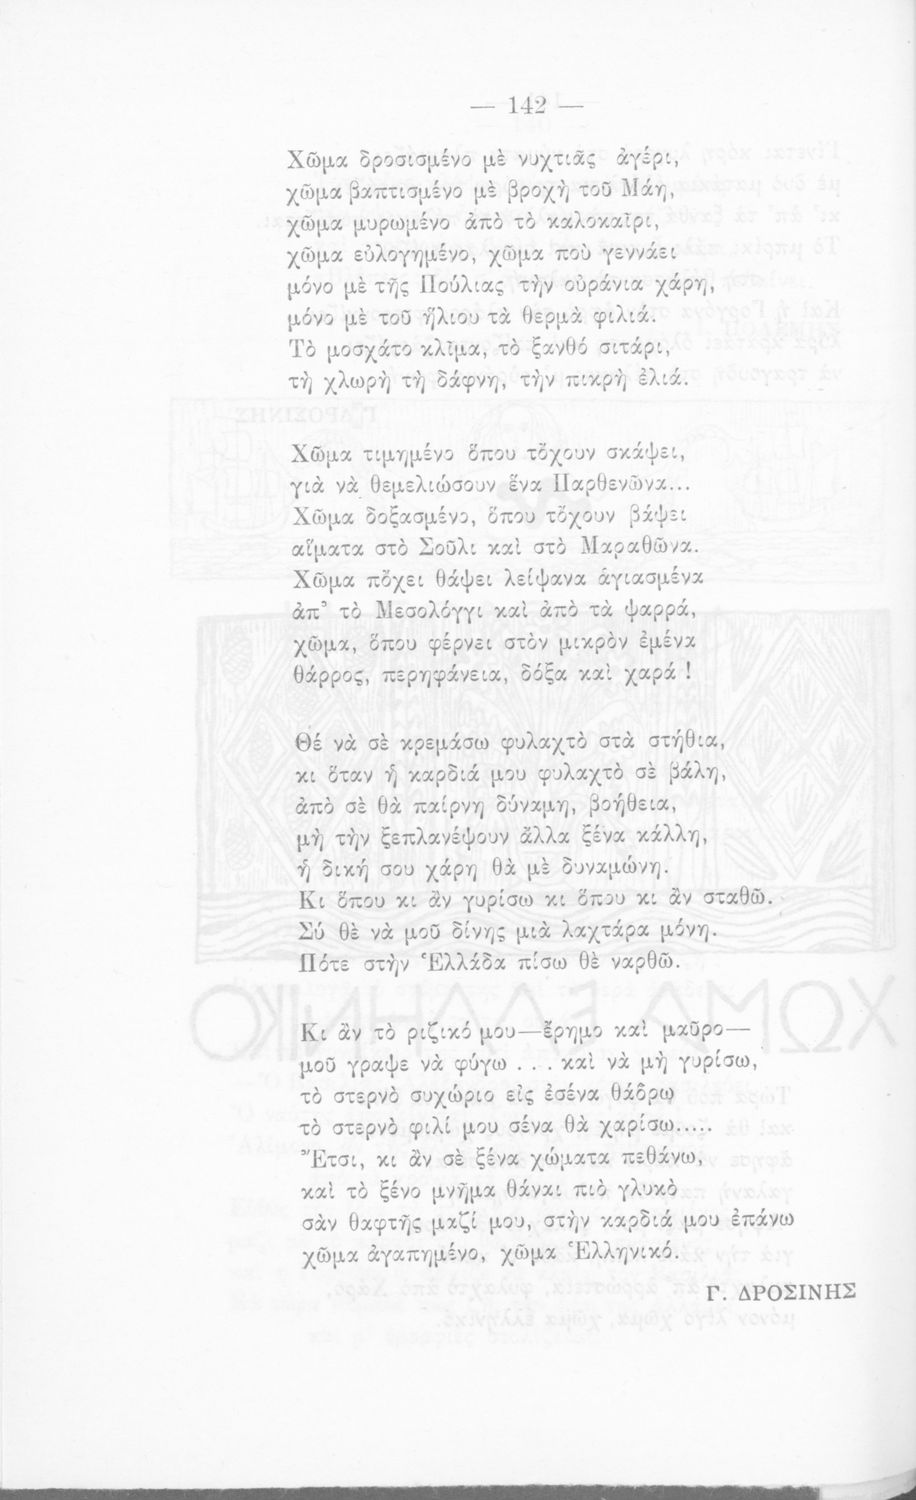 — 142 —
Χῶμα δροσισμένο μὲ νυχτιᾶς ἀγέρι,
χῶμα βαπτισμένο μὲ βροχὴ τοῦ Μάη,
χῶμα μυρωμένο ἀπὸ τὸ καλοκαῖρι,
χῶμα εὐλογημένο, χῶμα ποὺ γεννάει
μόνο μὲ τῆς Πούλιας τὴν οὐράνια χάρη,
μόνο μὲ τοῦ ἥλιου τὰ θερμὰ φιλιά.
Τὸ μοσχάτο κλῖμα, τὸ ξανθό σιτάρι,
τὴ χλωρὴ τὴ δάφνη, τὴν πικρὴ ἐλιά.
Χῶμα τιμημένο ὅπου τὄχουν σκάψει,
γιὰ νὰ θεμελιώσουν ἕνα Παρθενῶνα...
Χῶμα δοξασμένο, ὅπου τὄχουν βάψει
αἵματα στὸ Σοῦλι καὶ στὸ Μαραθῶνα.
Χῶμα πὄχει θάψει λείψανα ἁγιασμένα
ἀπ' τὸ Μεσολόγγι καὶ ἀπὸ τὰ ψαρρά,
χῶμα, ὅπου φέρνει στὸν μικρὸν ἐμένα
θάρρος, περηφάνεια, δόξα καὶ χαρά !
Θέ νὰ σὲ κρεμάσω φυλαχτὸ στὰ στήθια,
κι ὅταν ἡ καρδιά μου φυλαχτὸ σὲ βάλη,
ἀπὸ σὲ θὰ παίρνη δύναμη, βοήθεια,
μὴ τὴν ξεπλανέψουν ἄλλα ξένα κάλλη,
ἡ δική σου χάρη θὰ μὲ δυναμώνη.
Κι ὅπου κι ἂν γυρίσω κι ὅπου κι ἂν σταθῶ.
Σύ θὲ νὰ μοῦ δίνης μιὰ λαχτάρα μόνη.
Πότε στὴν Ἑλλάδα πίσω θὲ ναρθῶ.
Κι ἂν τὸ ριζικό μου—ἔρημο καὶ μαῦρο—
μοῦ γραψε νὰ φύγω . . . καὶ νὰ μὴ γυρίσω,
τὸ στερνὸ συχώριο εἰς ἐσένα θἄδρω
τὸ στερνὸ φιλί μου σένα θὰ χαρίσω.....
Ἔτσι, κι ἂν σὲ ξένα χώματα πεθάνω,
καὶ τὸ ξένο μνῆμα θἄναι πιὸ γλυκὸ
σὰν θαφτῆς μαζί μου, στὴν καρδιά μου ἐπάνω
χῶμα ἀγαπημένο, χῶμα Ἑλληνικό.
Γ. ΔΡΟΣΙΝΗΣ